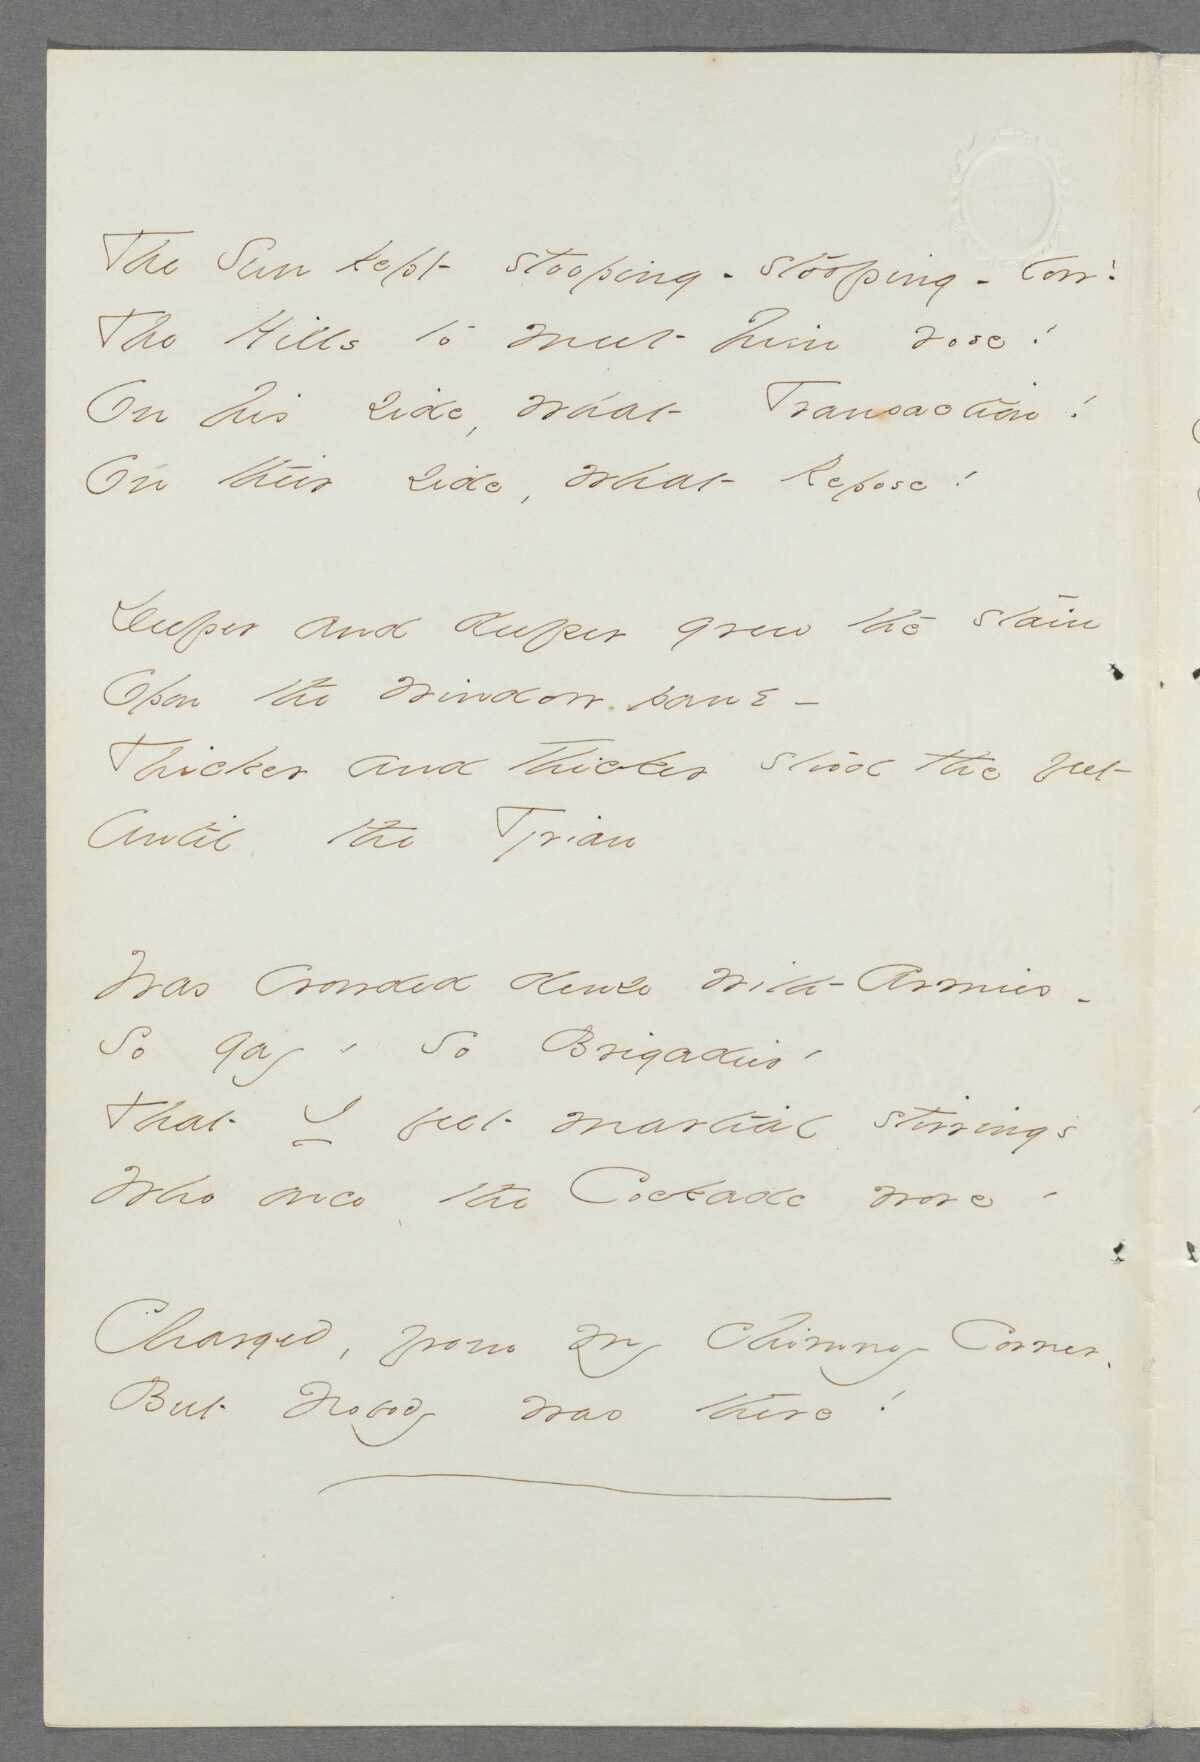 The Sun kept stooping - stooping - low!
The Hills to meet him rose!
On his side, what Transaction!
On their side, what Repose!
Deeper and deeper grew the stain
Upon the window pane -
Thicker and thicker stood the feet
Until the Tyrian
Was crowded dense with Armies -
So gay, so Brigadier -
That I felt martial stirrings
Who once the Cockade wore -
Charged, from my chimney Corner,
But Nobody was there!